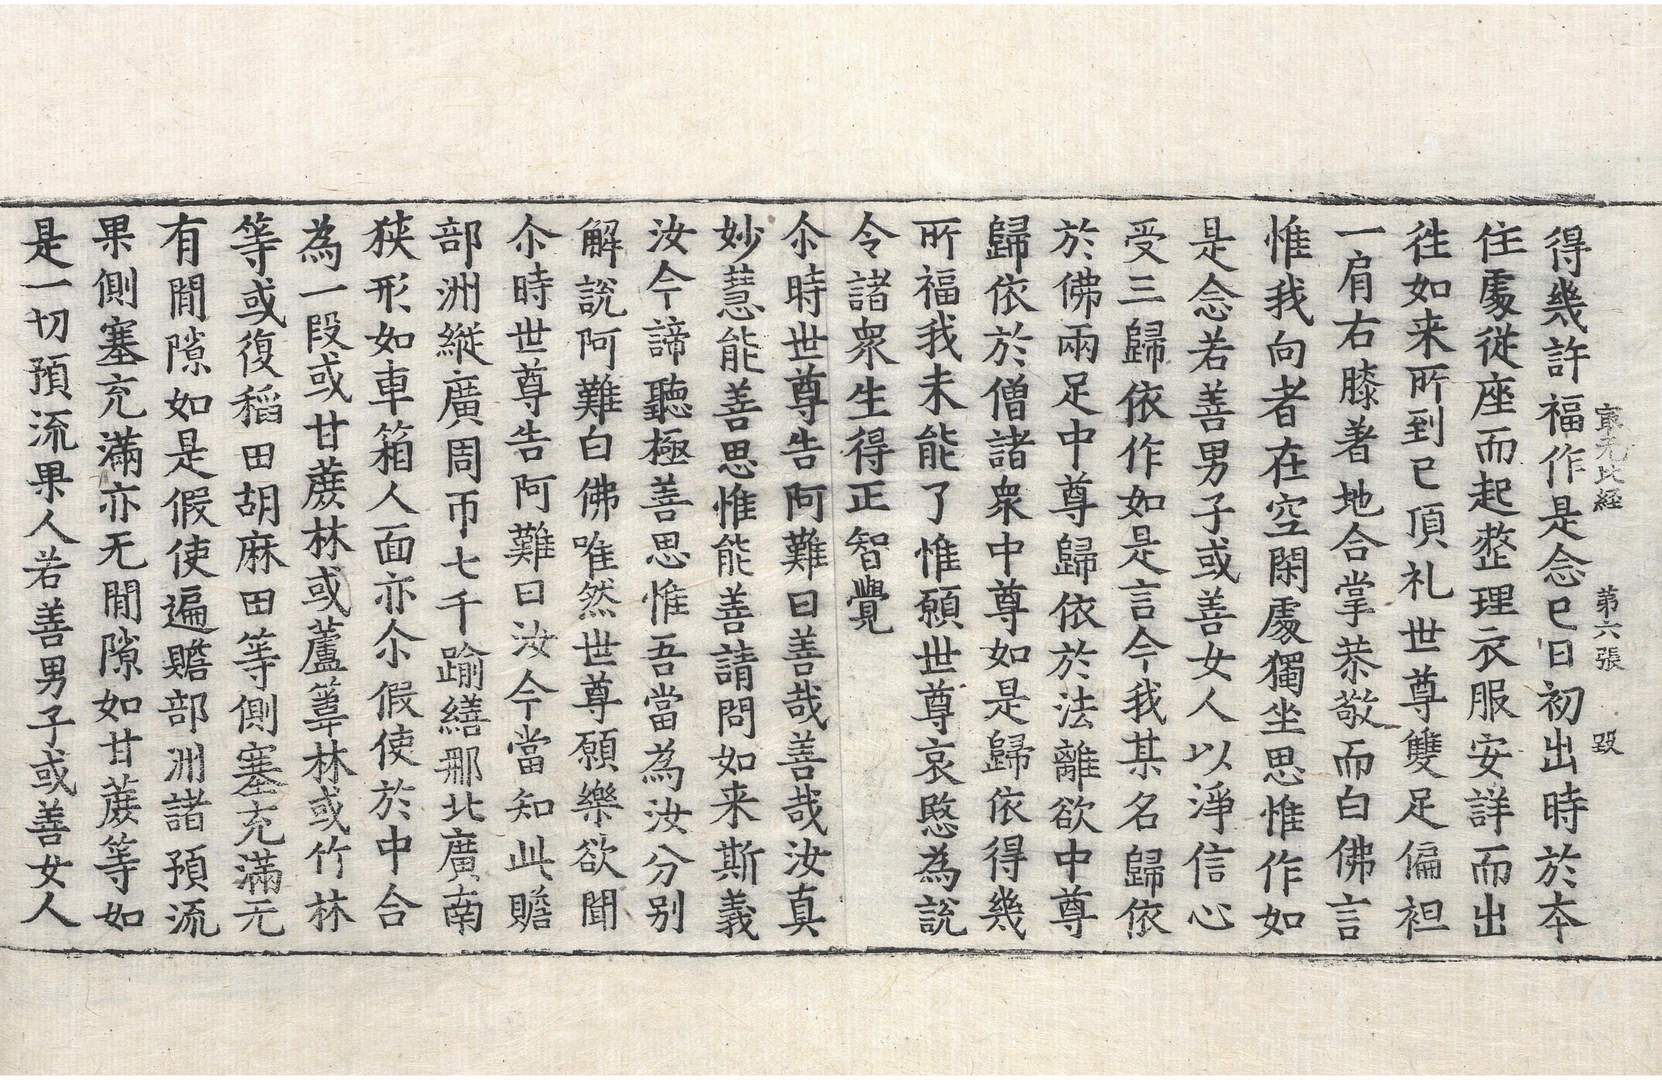 冣无比經　第六張　毀
得幾許福作是念已日初出時於本
住處從座而起整理衣服安詳而出
徃如来所到已頂礼世尊雙足偏袒
一肩右膝著地合掌恭敬而白佛言
惟我向者在空閑處獨坐思惟作如
是念若善男子或善女人以淨信心
受三歸依作如是言今我某名歸依
於佛兩足中尊歸依於法離欲中尊
歸依於僧諸衆中尊如是歸依得幾
所福我未能了惟願世尊哀愍為說
令諸衆生得正智覺
尒時世尊告阿難曰善哉善哉汝真
妙慧能善思惟能善請問如来斯義
汝今諦聽極善思惟吾當為汝分别
解說阿難白佛唯然世尊願樂欲聞
尒時世尊告阿難曰汝今當知此贍
部洲縱廣周帀七千踰繕那北廣南
狹形如車箱人面亦尒假使於中合
為一段或甘蔗林或蘆葦林或竹林
等或復稻田胡麻田等側塞充滿无
有間隙如是假使遍贍部洲諸預流
果側塞充滿亦无間隙如甘蔗等如
是一切預流果人若善男子或善女人